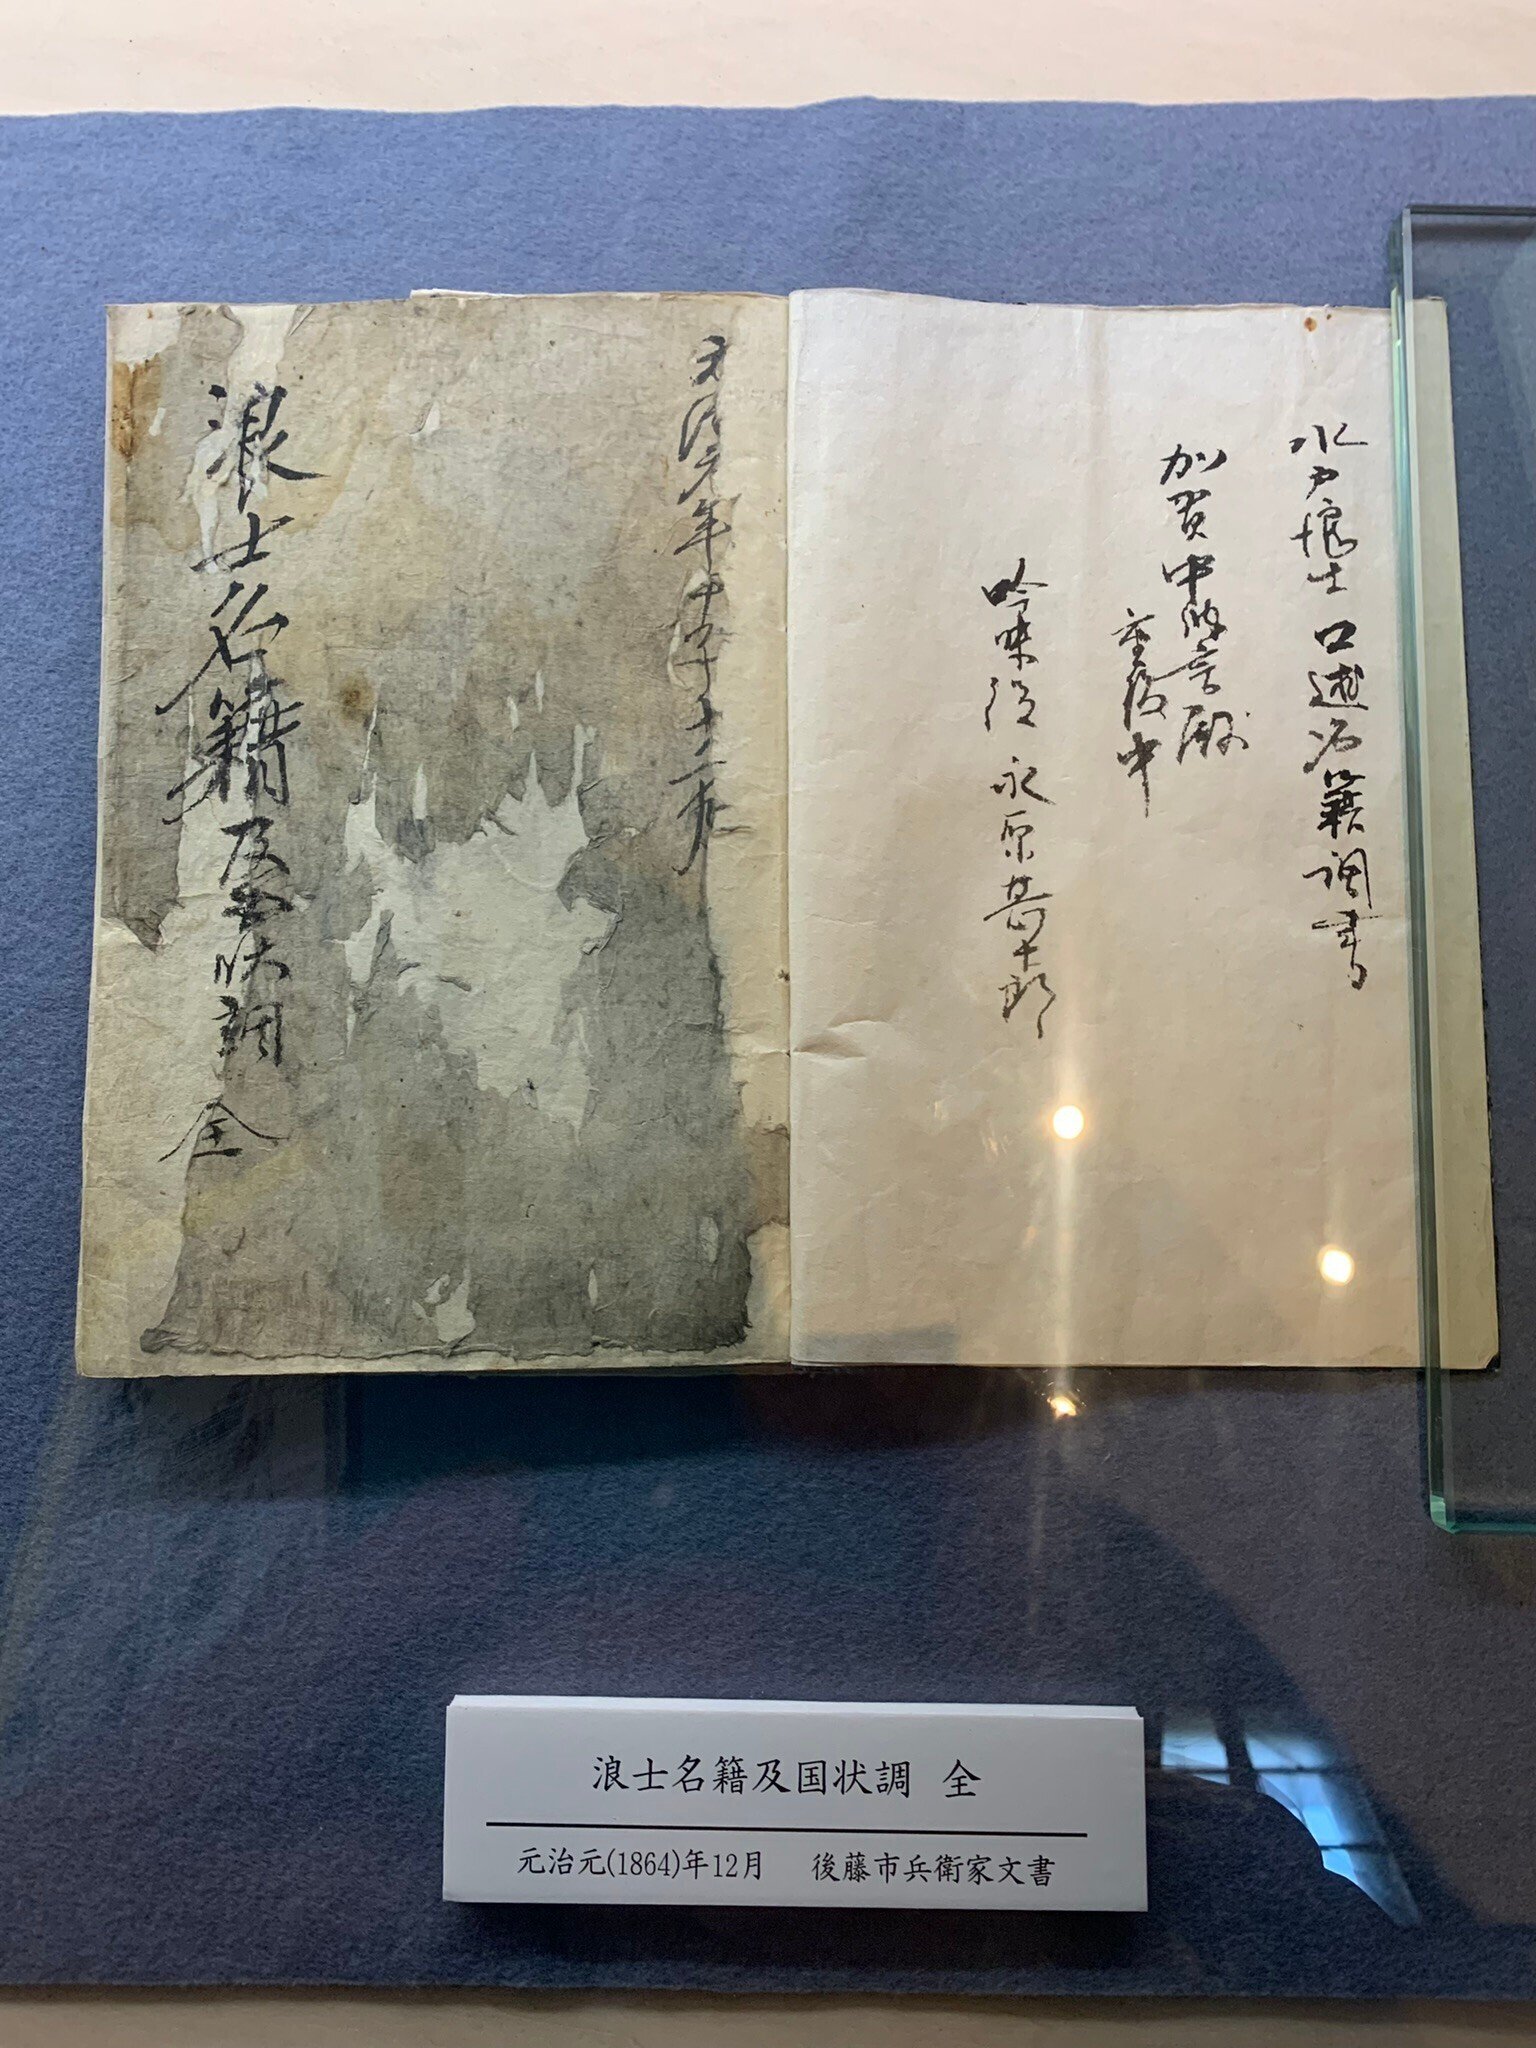 水戸浪士口述名籍調書
加賀中納言殿
重役中
吟味役 永原甚七郎
元治元年甲子十二月
浪士名籍及国状調 全
浪士名籍及国状調 全
元治元(1864)年12月 後藤市兵衛家文書